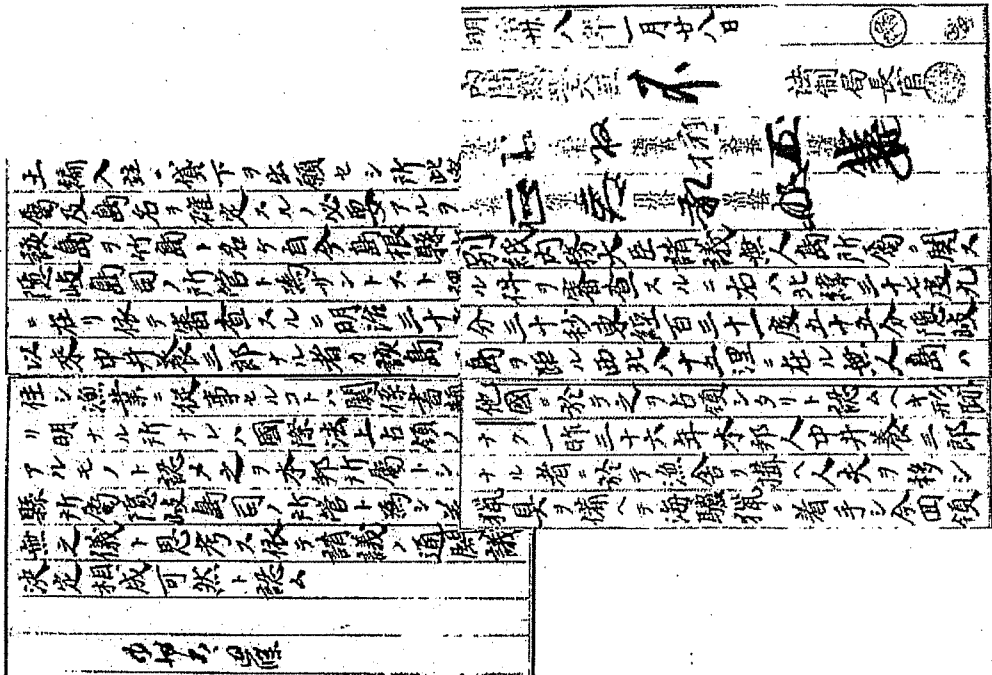 明治卅八年一月廿八日
内閣総理大臣 法制局長官
別紙内務大臣請議無人島所属ニ関ス
ル件ヲ審査スルニ右ハ北緯三十七度九
分三十秒東経百三十一度五十五分隠岐
島ヲ距ル西北八十五浬ニ在ル無人島ハ
他國ニ於テ之ヲ占領シタリト認ムヘキ形跡
ナク一昨三十六年本邦人中井養三郎
ナル者ニ於テ漁舎ヲ構ヘ人夫ヲ移シ
猟具ヲ備ヘテ海驢猟ニ着手シ今回領
土編入並ニ貸下ヲ出願セシ所此
属及島名ヲ確定スルノ必要アルヲ
該島ヲ竹島ト名ケ自今島根縣
隠岐島司ノ所管ト為サントスト
ニ在リ依テ審査スルニ明治三十
以来中井養三郎ナル者カ該島
住シ漁業ニ従事セルコトハ関係書類
リ明ナル所ナレハ國際法上占領ノ
アルモノト認メ之ヲ本邦所属トシ
縣所属隠岐島司ノ所管ト為シ差
無之儀ト思考ス依テ請議ノ通閣議
決定相成可然ト認ム